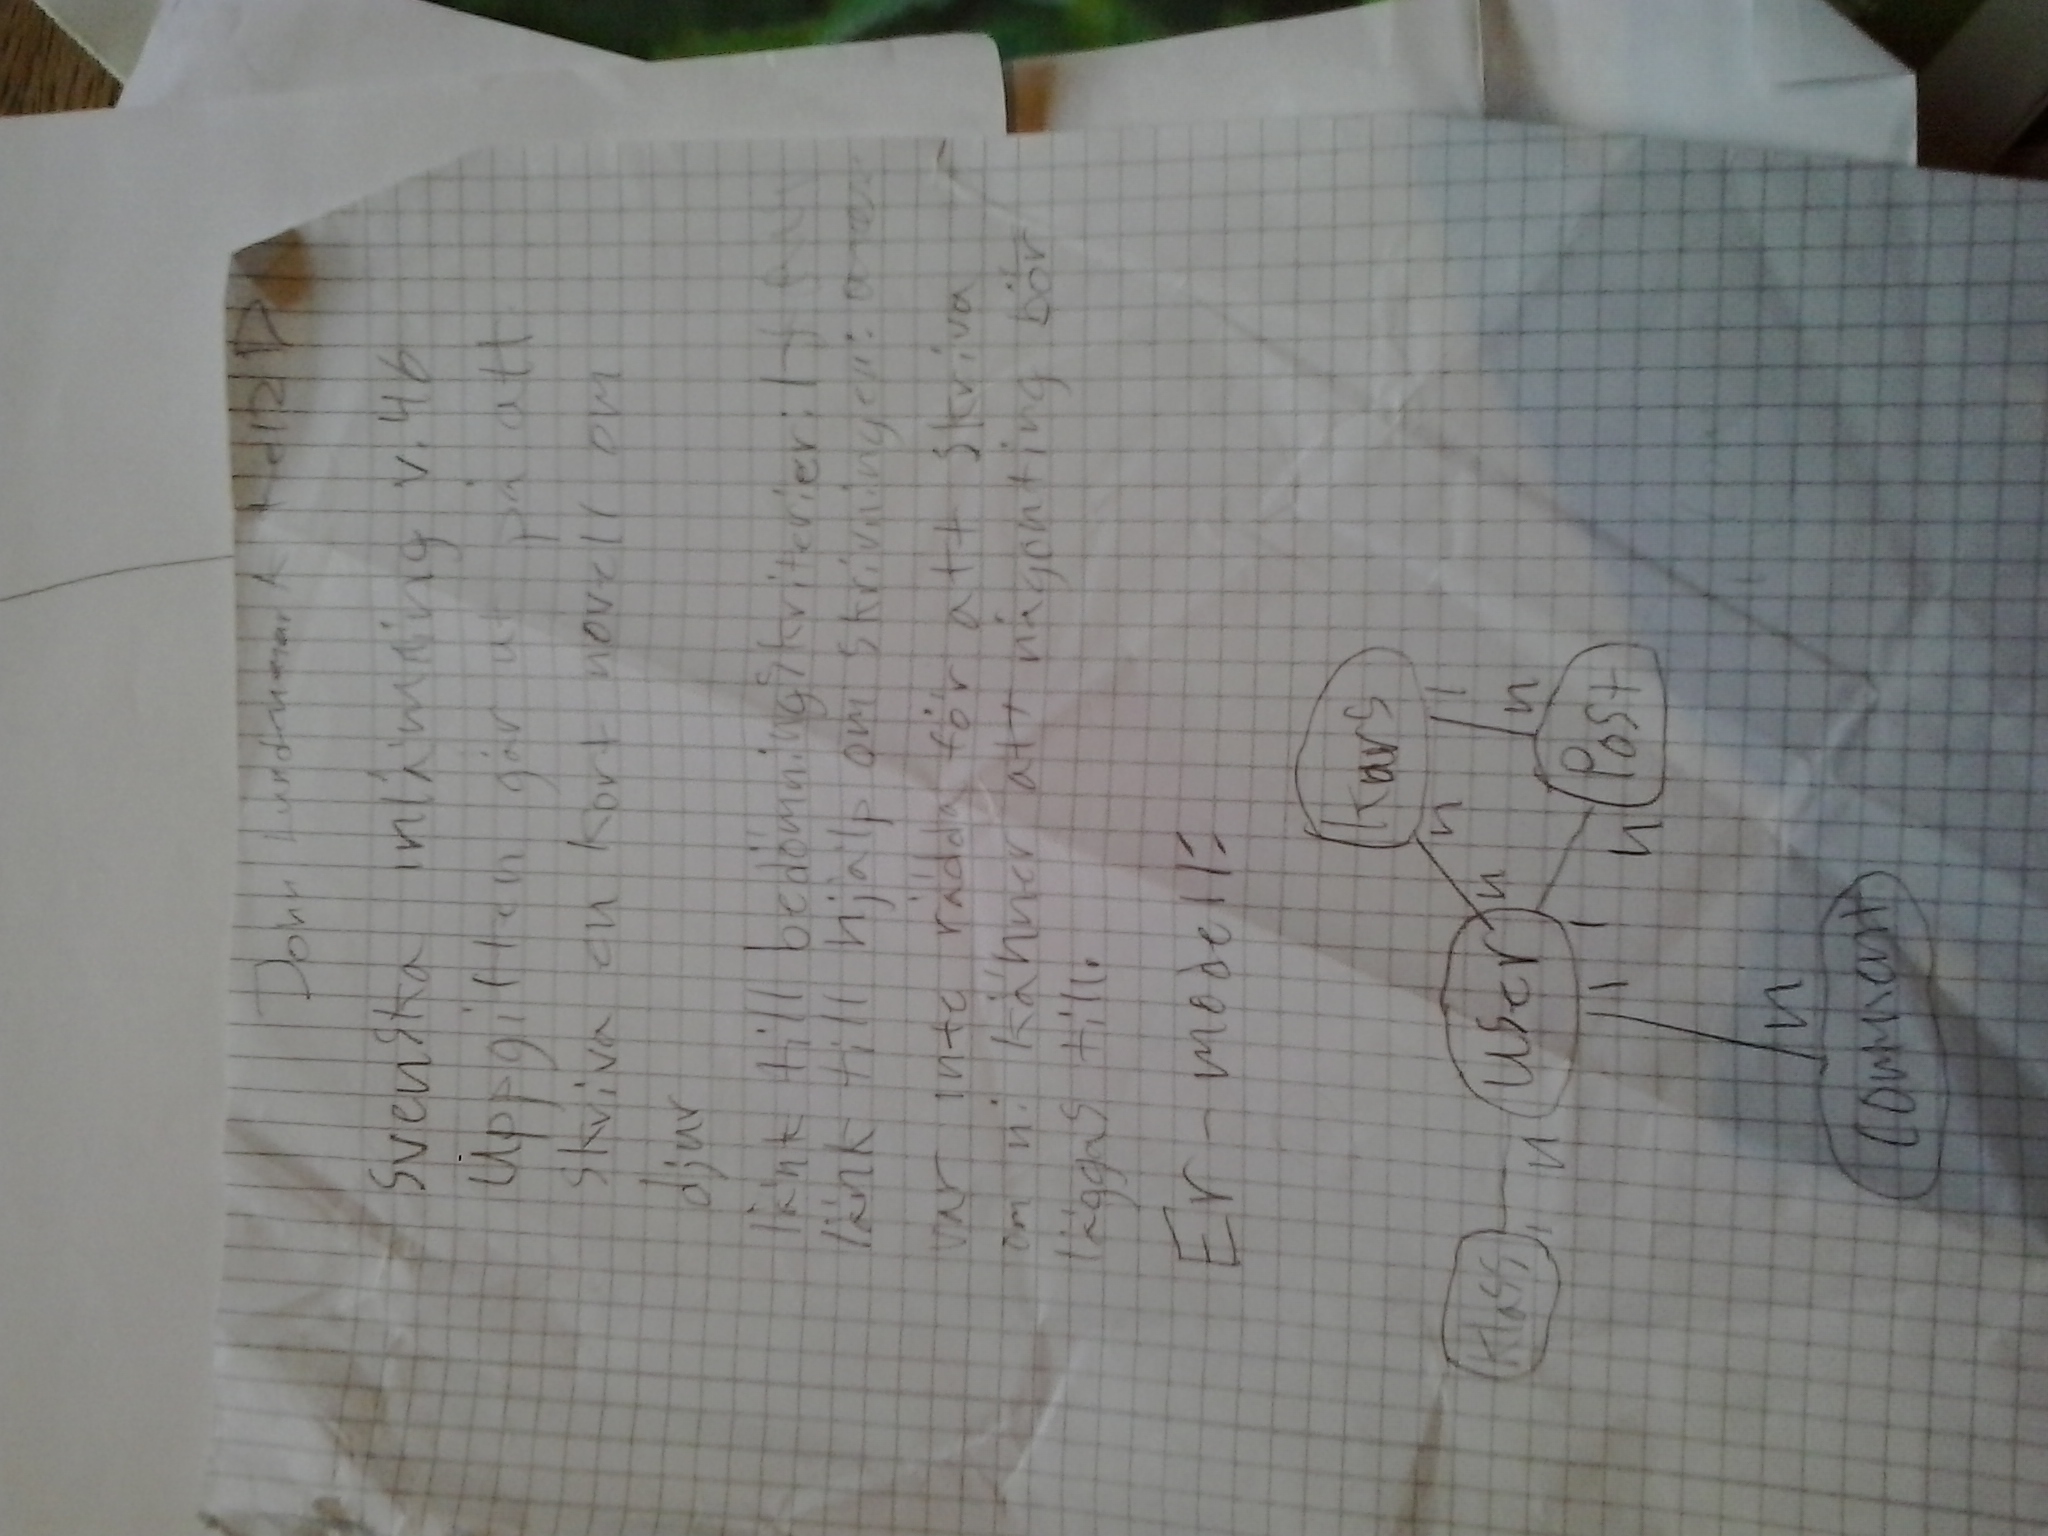 John Lundmark
Svenska inlämning v.46
Uppgiften går ut på att
skriva en kort novell om
djur
länk till bedömningskriterier:
länk till hjälp om skrivningen:
var inte rädda för att skriva
om ni känner att någonting bör
läggas till.
Er-modell:
kurs
n 1
klass user n n
1 n Post
1 1 n
n
comment